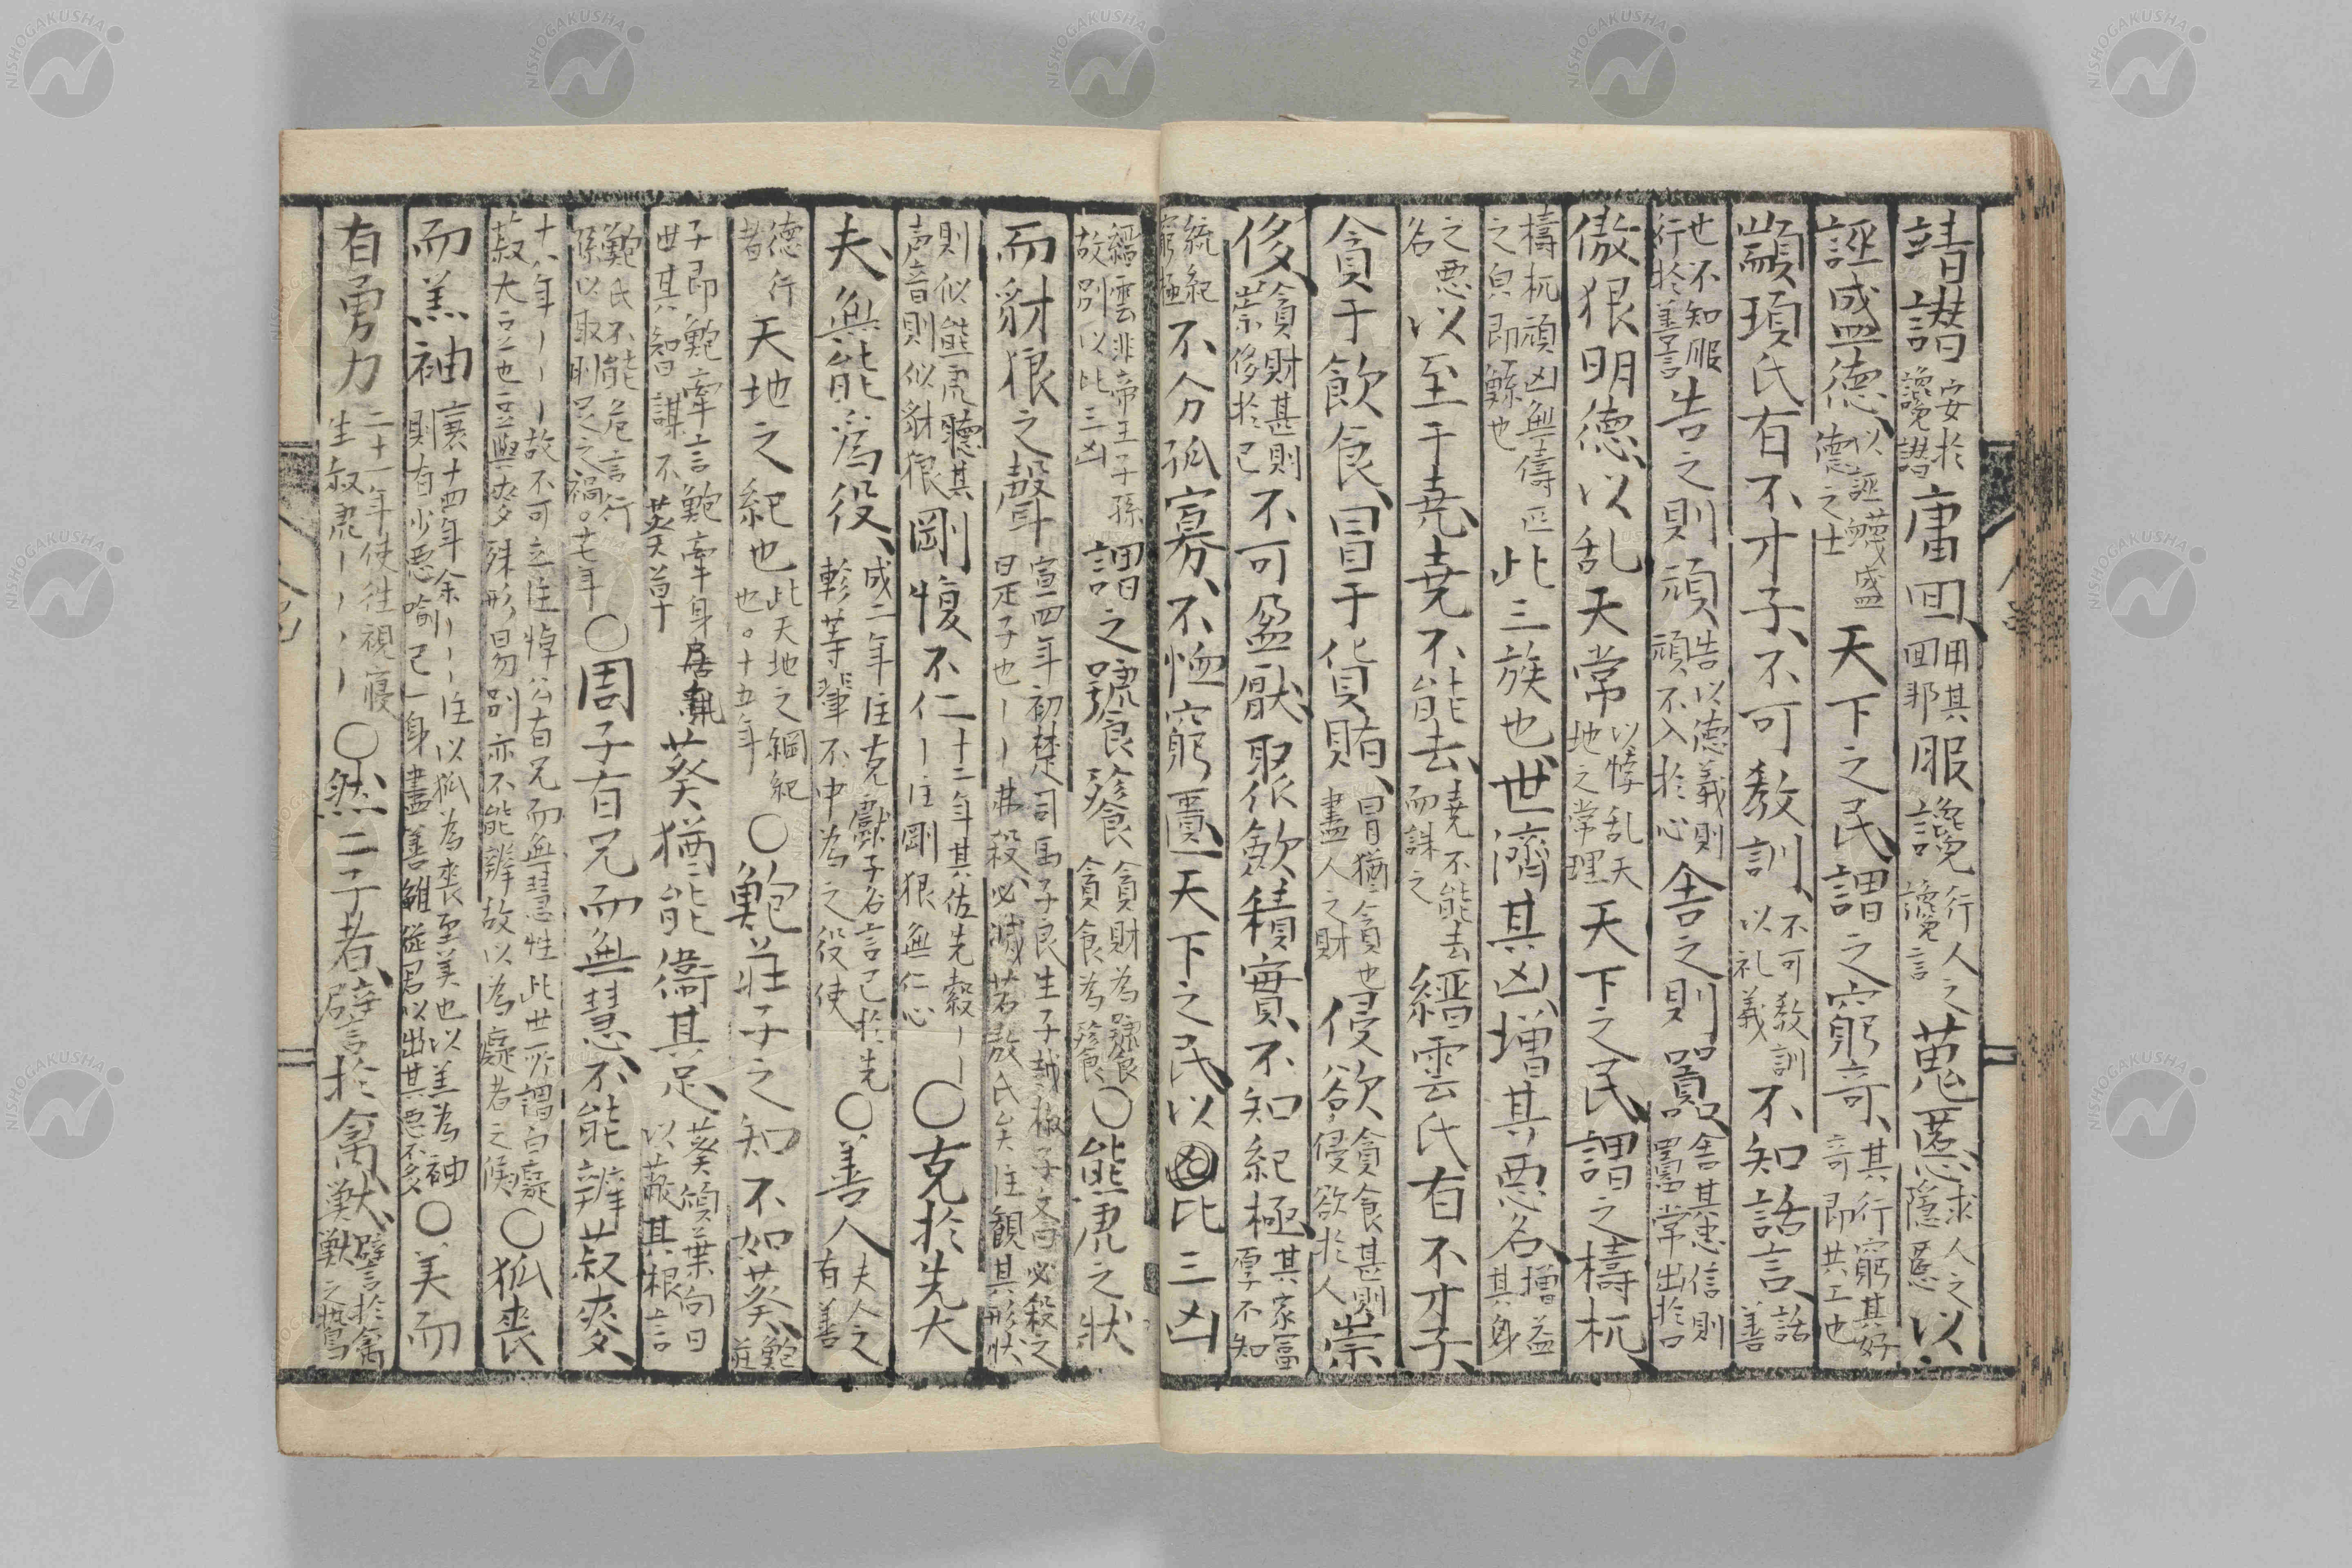 靖譖安於讒譖庸回用其回邪服讒行人之讒言蒐慝求人之隱慝以
誣盛德以誣衊盛德之士天下之民謂之窮奇其行窮其好奇即共工也
顓頊氏有不才子不可教訓不可教訓以礼義不知話言話善
也不知服行於善言告之則頑告以德義則頑不入於心舍之則嚚舍其忠信則嚚常出於口
傲狠明德以乱天常以悖乱天地之常理天下之民謂之檮杌
檮杌頑凶無儔匹之皃即鯀也此三族也世濟其凶增其惡名增益其身
之惡名以至于堯堯不能去堯不能去而誅之縉雲氏有不才子
貪于飲食冒于貨賄冒猶貪也盡人之財侵欲貪食甚則侵欲於人崇
侈貪財甚則崇侈於己不可盈厭聚歛積實不知紀極其家富厚不知
統紀窮極不分孤寡不恤窮匱天下之民以比三凶
縉雲非帝王子孫故別以比三凶謂之饕餮貪財為饕貪食為餮○熊虎之狀
而豺狼之聲宣四年初楚司馬子良生子越椒子文曰必殺之是子也ーー弗殺必滅若敖氏矣注觀其形狀
則似熊虎聽其声音則似豺狼剛愎不仁十二年其佐先縠ーーー注剛狠無仁心○克於先大
夫無能為役成二年注克獻子名言己於先軫等輩不中為之役使○善人夫人之有善
德行者天地之紀也此天地之綱紀也○十五年○鮑莊子之知不如葵鮑莊
子即鮑牽言鮑牽身居乱世其知謀不葵草葵猶能衞其足葵傾葉向日以蔽其根言
鮑氏不能危言行孫以取刖足之禍○十七年○周子有兄而無慧不能辨菽麥
十八年ーーーー故不可立注悼公有兄而無慧性此世所謂白癡菽大豆也豆與麥殊形易別亦不能辨故以為癡者之候○狐裘
而羔袖襄十四年余ーー注以狐為裘至美也以羔為袖則有少惡喻己一身盡善雖從君以出其惡不多○美而
有勇力二十一年使往視寢生叔虎ーーーー○然二子者譬於禽獸譬於禽獸之